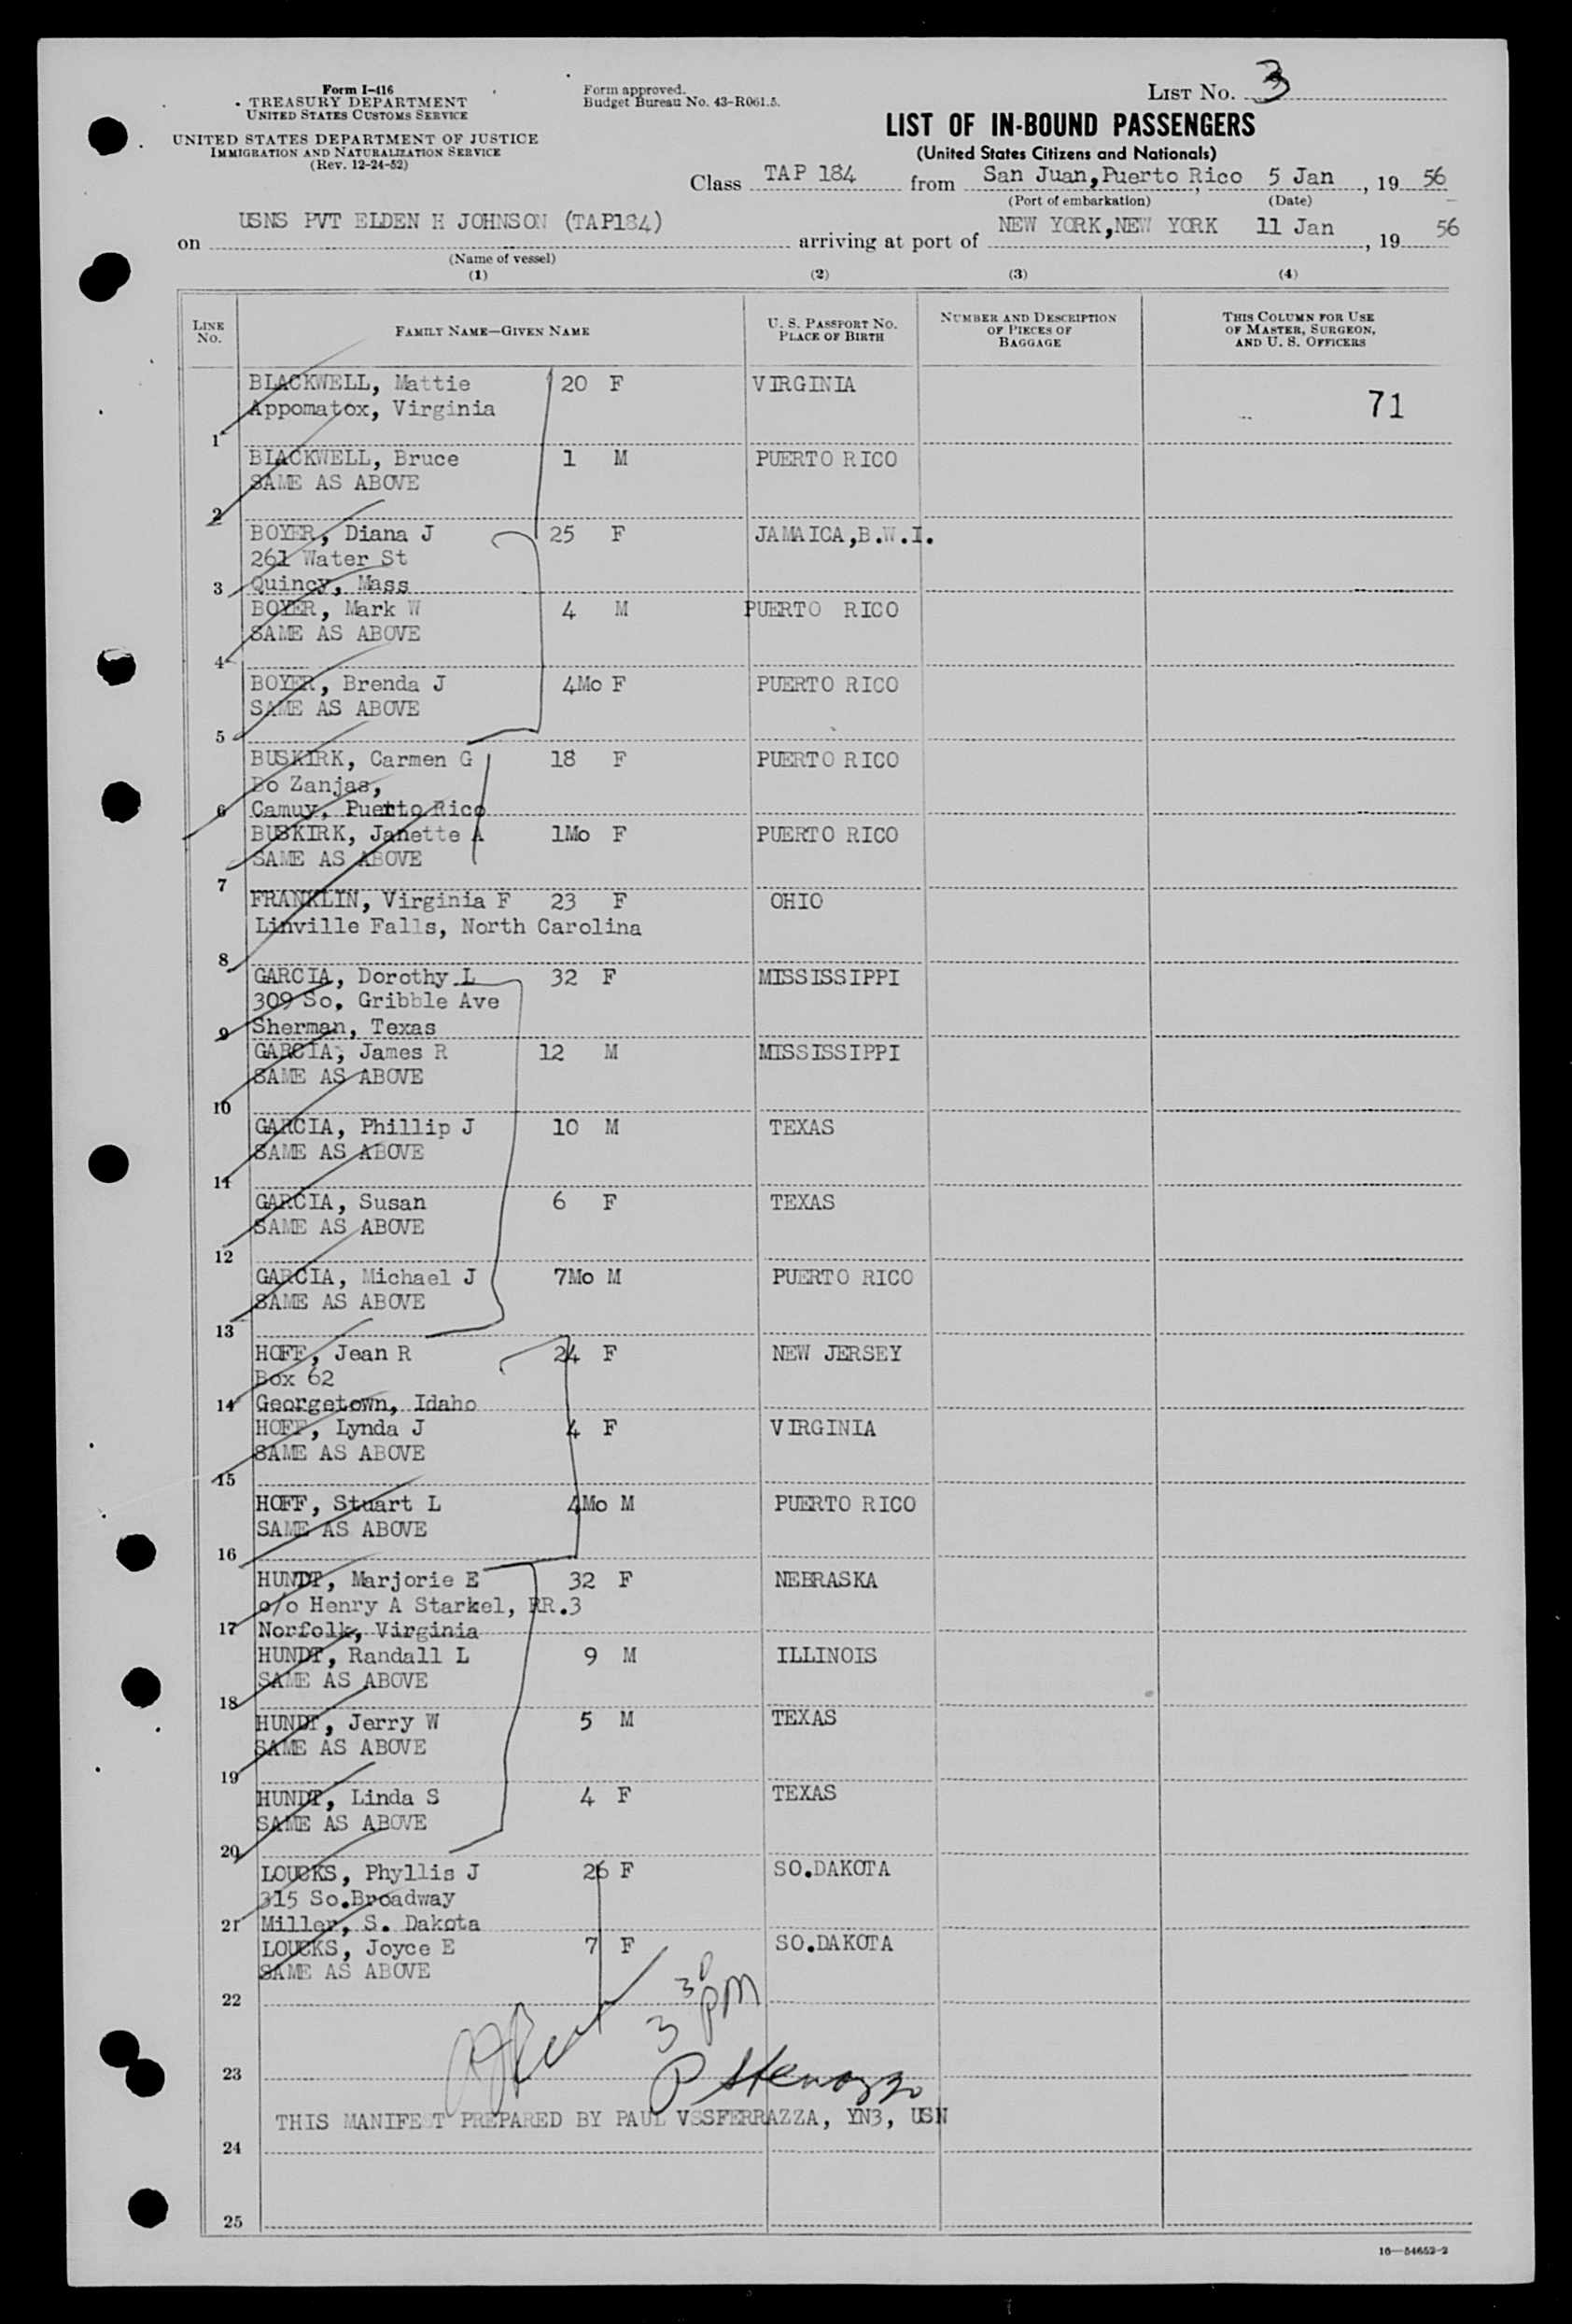 Form I-416
TREASURY DEPARTMENT
UNITED STATES CUSTOMS SERVICE
UNITED STATES DEPARTMENT OF JUSTICE
IMMIGRATION AND NATURALIZATION SERVICE
(Rev. 12-24-52)
Form approved.
Budget Bureau No. 43-R061.5.
LIST NO. 3
LIST OF IN-BOUND PASSENGERS
(United States Citizens and Nationals)
Class TAP 184 from San Juan, Puerto Rico 5 Jan, 19 56
(Port of embarkation) (Date)
on USNS PVT ELDEN H JOHNSON (TAP184) arriving at port of NEW YORK, NEW YORK 11 Jan, 19 56
(Name of vessel)
(1) (2) (3) (4)
LINE NO. FAMILY NAME—GIVEN NAME U. S. PASSPORT NO. PLACE OF BIRTH NUMBER AND DESCRIPTION OF PIECES OF BAGGAGE THIS COLUMN FOR USE OF MASTER, SURGEON, AND U. S. OFFICERS
BLACKWELL, Mattie 20 F VIRGINIA
Appomatox, Virginia 71
1
BLACKWELL, Bruce 1 M PUERTO RICO
SAME AS ABOVE
2
BOYER, Diana J 25 F JAMAICA,B.W.I.
261 Water St
3 Quincy, Mass
BOYER, Mark W 4 M PUERTO RICO
SAME AS ABOVE
4
BOYER, Brenda J 4Mo F PUERTO RICO
SAME AS ABOVE
5
BUSKIRK, Carmen G 18 F PUERTO RICO
Bo Zanjas,
6 Camuy, Puerto Rico
BUSKIRK, Janette A 1Mo F PUERTO RICO
SAME AS ABOVE
7
FRANKLIN, Virginia F 23 F OHIO
Linville Falls, North Carolina
8
GARCIA, Dorothy L 32 F MISSISSIPPI
309 So. Gribble Ave
9 Sherman, Texas
GARCIA, James R 12 M MISSISSIPPI
SAME AS ABOVE
10
GARCIA, Phillip J 10 M TEXAS
SAME AS ABOVE
11
GARCIA, Susan 6 F TEXAS
SAME AS ABOVE
12
GARCIA, Michael J 7Mo M PUERTO RICO
SAME AS ABOVE
13
HOFF, Jean R 24 F NEW JERSEY
Box 62
14 Georgetown, Idaho
HOFF, Lynda J 4 F VIRGINIA
SAME AS ABOVE
15
HOFF, Stuart L 4Mo M PUERTO RICO
SAME AS ABOVE
16
HUNDT, Marjorie E 32 F NEBRASKA
c/o Henry A Starkel, RR.3
17 Norfolk, Virginia
HUNDT, Randall L 9 M ILLINOIS
SAME AS ABOVE
18
HUNDT, Jerry W 5 M TEXAS
SAME AS ABOVE
19
HUNDT, Linda S 4 F TEXAS
SAME AS ABOVE
20
LOUCKS, Phyllis J 26 F SO.DAKOTA
315 So.Broadway
21 Miller, S. Dakota
LOUCKS, Joyce E 7 F SO.DAKOTA
SAME AS ABOVE
22
3 30 PM
23
THIS MANIFEST PREPARED BY PAUL VSSFERRAZZA, YN3, USN
24
25
16—54652-2